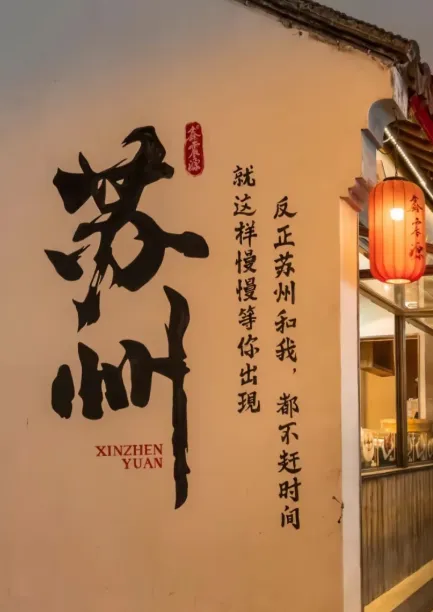 苏州
鑫震源
XINZHEN
YUAN
反正苏州和我，都不赶时间
就这样慢慢等你出現
鑫震源